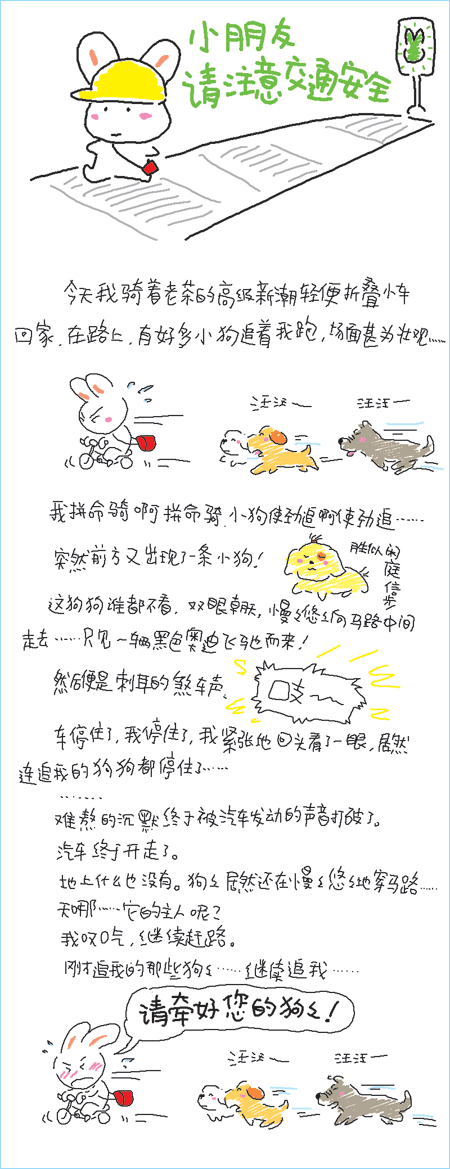 小朋友
请注意交通安全
今天我骑着老茶的高级新潮轻便折叠小车
回家.在路上,有好多小狗追着我跑,场面甚为壮观……
汪汪一
汪汪一
我拼命骑啊拼命骑.小狗使劲追啊使劲追……
突然前方又出现了一条小狗!
胜似闲庭信步
这狗狗谁都不看.双眼朝天,慢々悠々向马路中间
走去……只见一辆黑色奥迪飞驰而来!
然后便是刺耳的煞车声.
吱~~
车停住了,我停住了,我紧张地回头看了一眼,居然
连追我的狗狗都停住了……
………
难熬的沉默终于被汽车发动的声音打破了。
汽车终于开走了。
地上什么也没有。狗々居然还在慢々悠々地穿马路……
天哪……它的主人呢?
我叹口气,继续赶路。
刚才追我的那些狗々……继续追我……
请牵好您的狗々!
汪汪一
汪汪一